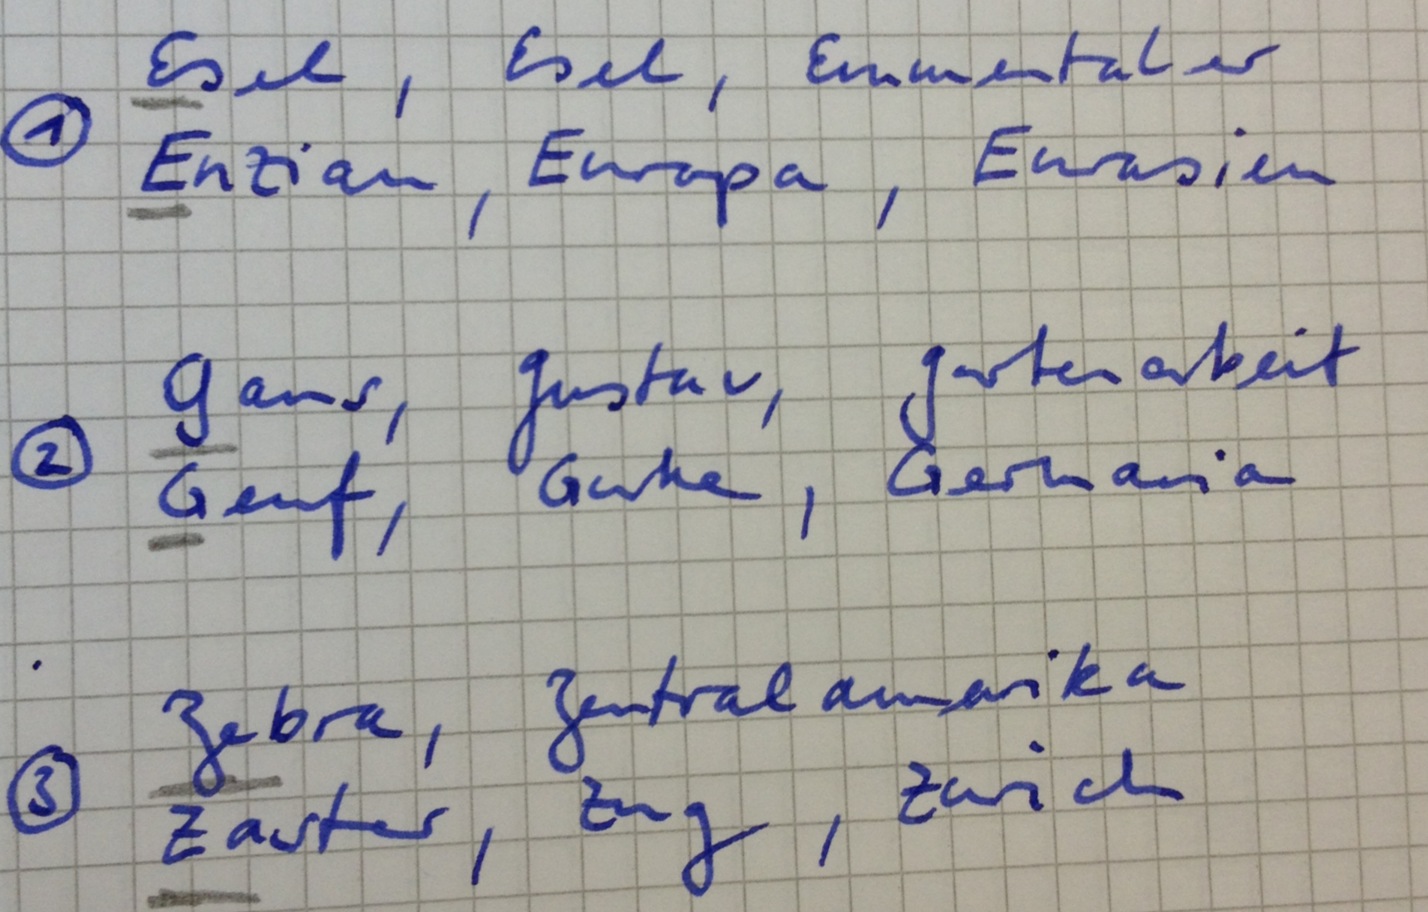 Esel, Esel, Emmentaler
① Enzian, Europa, Eurasien
Gans, Gustav, Gartenarbeit
② Genf, Gurke, Germania
Zebra, Zentralamerika
③ Zaster, Zug, Zürich